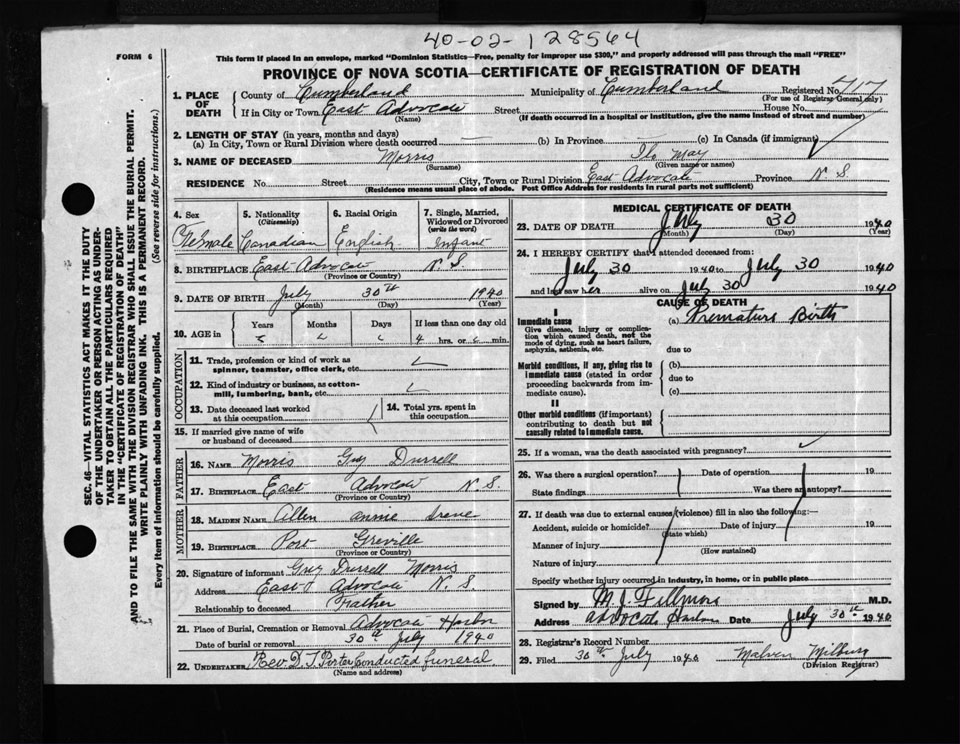 40-02-128564
FORM 6
This form if placed in an envelope, marked "Dominion Statistics—Free, penalty for improper use $300," and properly addressed will pass through the mail "FREE"
PROVINCE OF NOVA SCOTIA—CERTIFICATE OF REGISTRATION OF DEATH
1. PLACE OF DEATH County of Cumberland Municipality of Cumberland Registered No. 717
(For use of Registrar General only)
If in City or Town East Advocate Street House No.
(Name) (If death occurred in a hospital or institution, give the name instead of street and number)
2. LENGTH OF STAY (in years, months and days)
(a) In City, Town or Rural Division where death occurred — (b) In Province — (c) In Canada (if immigrant)
3. NAME OF DECEASED Morris May
(Surname) (Given name or names)
RESIDENCE No. Street City, Town or Rural Division East Advocate Province N S
(Residence means usual place of abode. Post Office Address for residents in rural parts not sufficient)
4. Sex Female
5. Nationality (Citizenship) Canadian
6. Racial Origin English
7. Single, Married, Widowed or Divorced (write the word) Infant
8. BIRTHPLACE East Advocate N S.
(Province or Country)
9. DATE OF BIRTH July 30th 1940
(Month) (Day) (Year)
10. AGE in Years Months Days If less than one day old
4 hrs. or min.
OCCUPATION
11. Trade, profession or kind of work as spinner, teamster, office clerk, etc.
12. Kind of industry or business, as cotton-mill, lumbering, bank, etc.
13. Date deceased last worked at this occupation
14. Total yrs. spent in this occupation
15. If married give name of wife or husband of deceased
FATHER
16. NAME Morris Guy Durrell
17. BIRTHPLACE East Advocate N. S.
(Province or Country)
MOTHER
18. MAIDEN NAME Allen Annie Irene
19. BIRTHPLACE Port Greville
(Province or Country)
20. Signature of informant Guy Durrell Morris
Address East Advocate N. S.
Relationship to deceased Father
21. Place of Burial, Cremation or Removal Advocate Harbor
Date of burial or removal 30th July 1940
22. UNDERTAKER Rev. D. T. Porter Conducted funeral
(Name and address)
MEDICAL CERTIFICATE OF DEATH
23. DATE OF DEATH July 30 1940
(Month) (Day) (Year)
24. I HEREBY CERTIFY that I attended deceased from:
July 30 1940 to July 30 1940
and last saw her alive on July 30 1940
CAUSE OF DEATH
I
Immediate cause
Give disease, injury or complication which caused death, not the mode of dying, such as heart failure, asphyxia, asthenia, etc.
(a) Premature Birth
due to
Morbid conditions, if any, giving rise to immediate cause (stated in order proceeding backwards from immediate cause).
(b)
due to
(c)
II
Other morbid conditions (if important) contributing to death but not causally related to immediate cause.
25. If a woman, was the death associated with pregnancy?
26. Was there a surgical operation? Date of operation 19
State findings Was there an autopsy?
27. If death was due to external causes (violence) fill in also the following:—
Accident, suicide or homicide? Date of injury 19
(State which)
Manner of injury
(How sustained)
Nature of injury
Specify whether injury occurred in industry, in home, or in public place
Signed by M. J. Fillmore M.D.
Address Advocate Harbor Date July 30th 1940
28. Registrar's Record Number
29. Filed 30th July 1940 Milbury
(Division Registrar)
SEC. 46—VITAL STATISTICS ACT MAKES IT THE DUTY
OF THE UNDERTAKER OR PERSON ACTING AS UNDER-
TAKER TO OBTAIN ALL THE PARTICULARS REQUIRED
IN THE "CERTIFICATE OF REGISTRATION OF DEATH"
AND TO FILE THE SAME WITH THE DIVISION REGISTRAR WHO SHALL ISSUE THE BURIAL PERMIT.
WRITE PLAINLY WITH UNFADING INK. THIS IS A PERMANENT RECORD.
Every item of information should be carefully supplied. (See reverse side for instructions.)